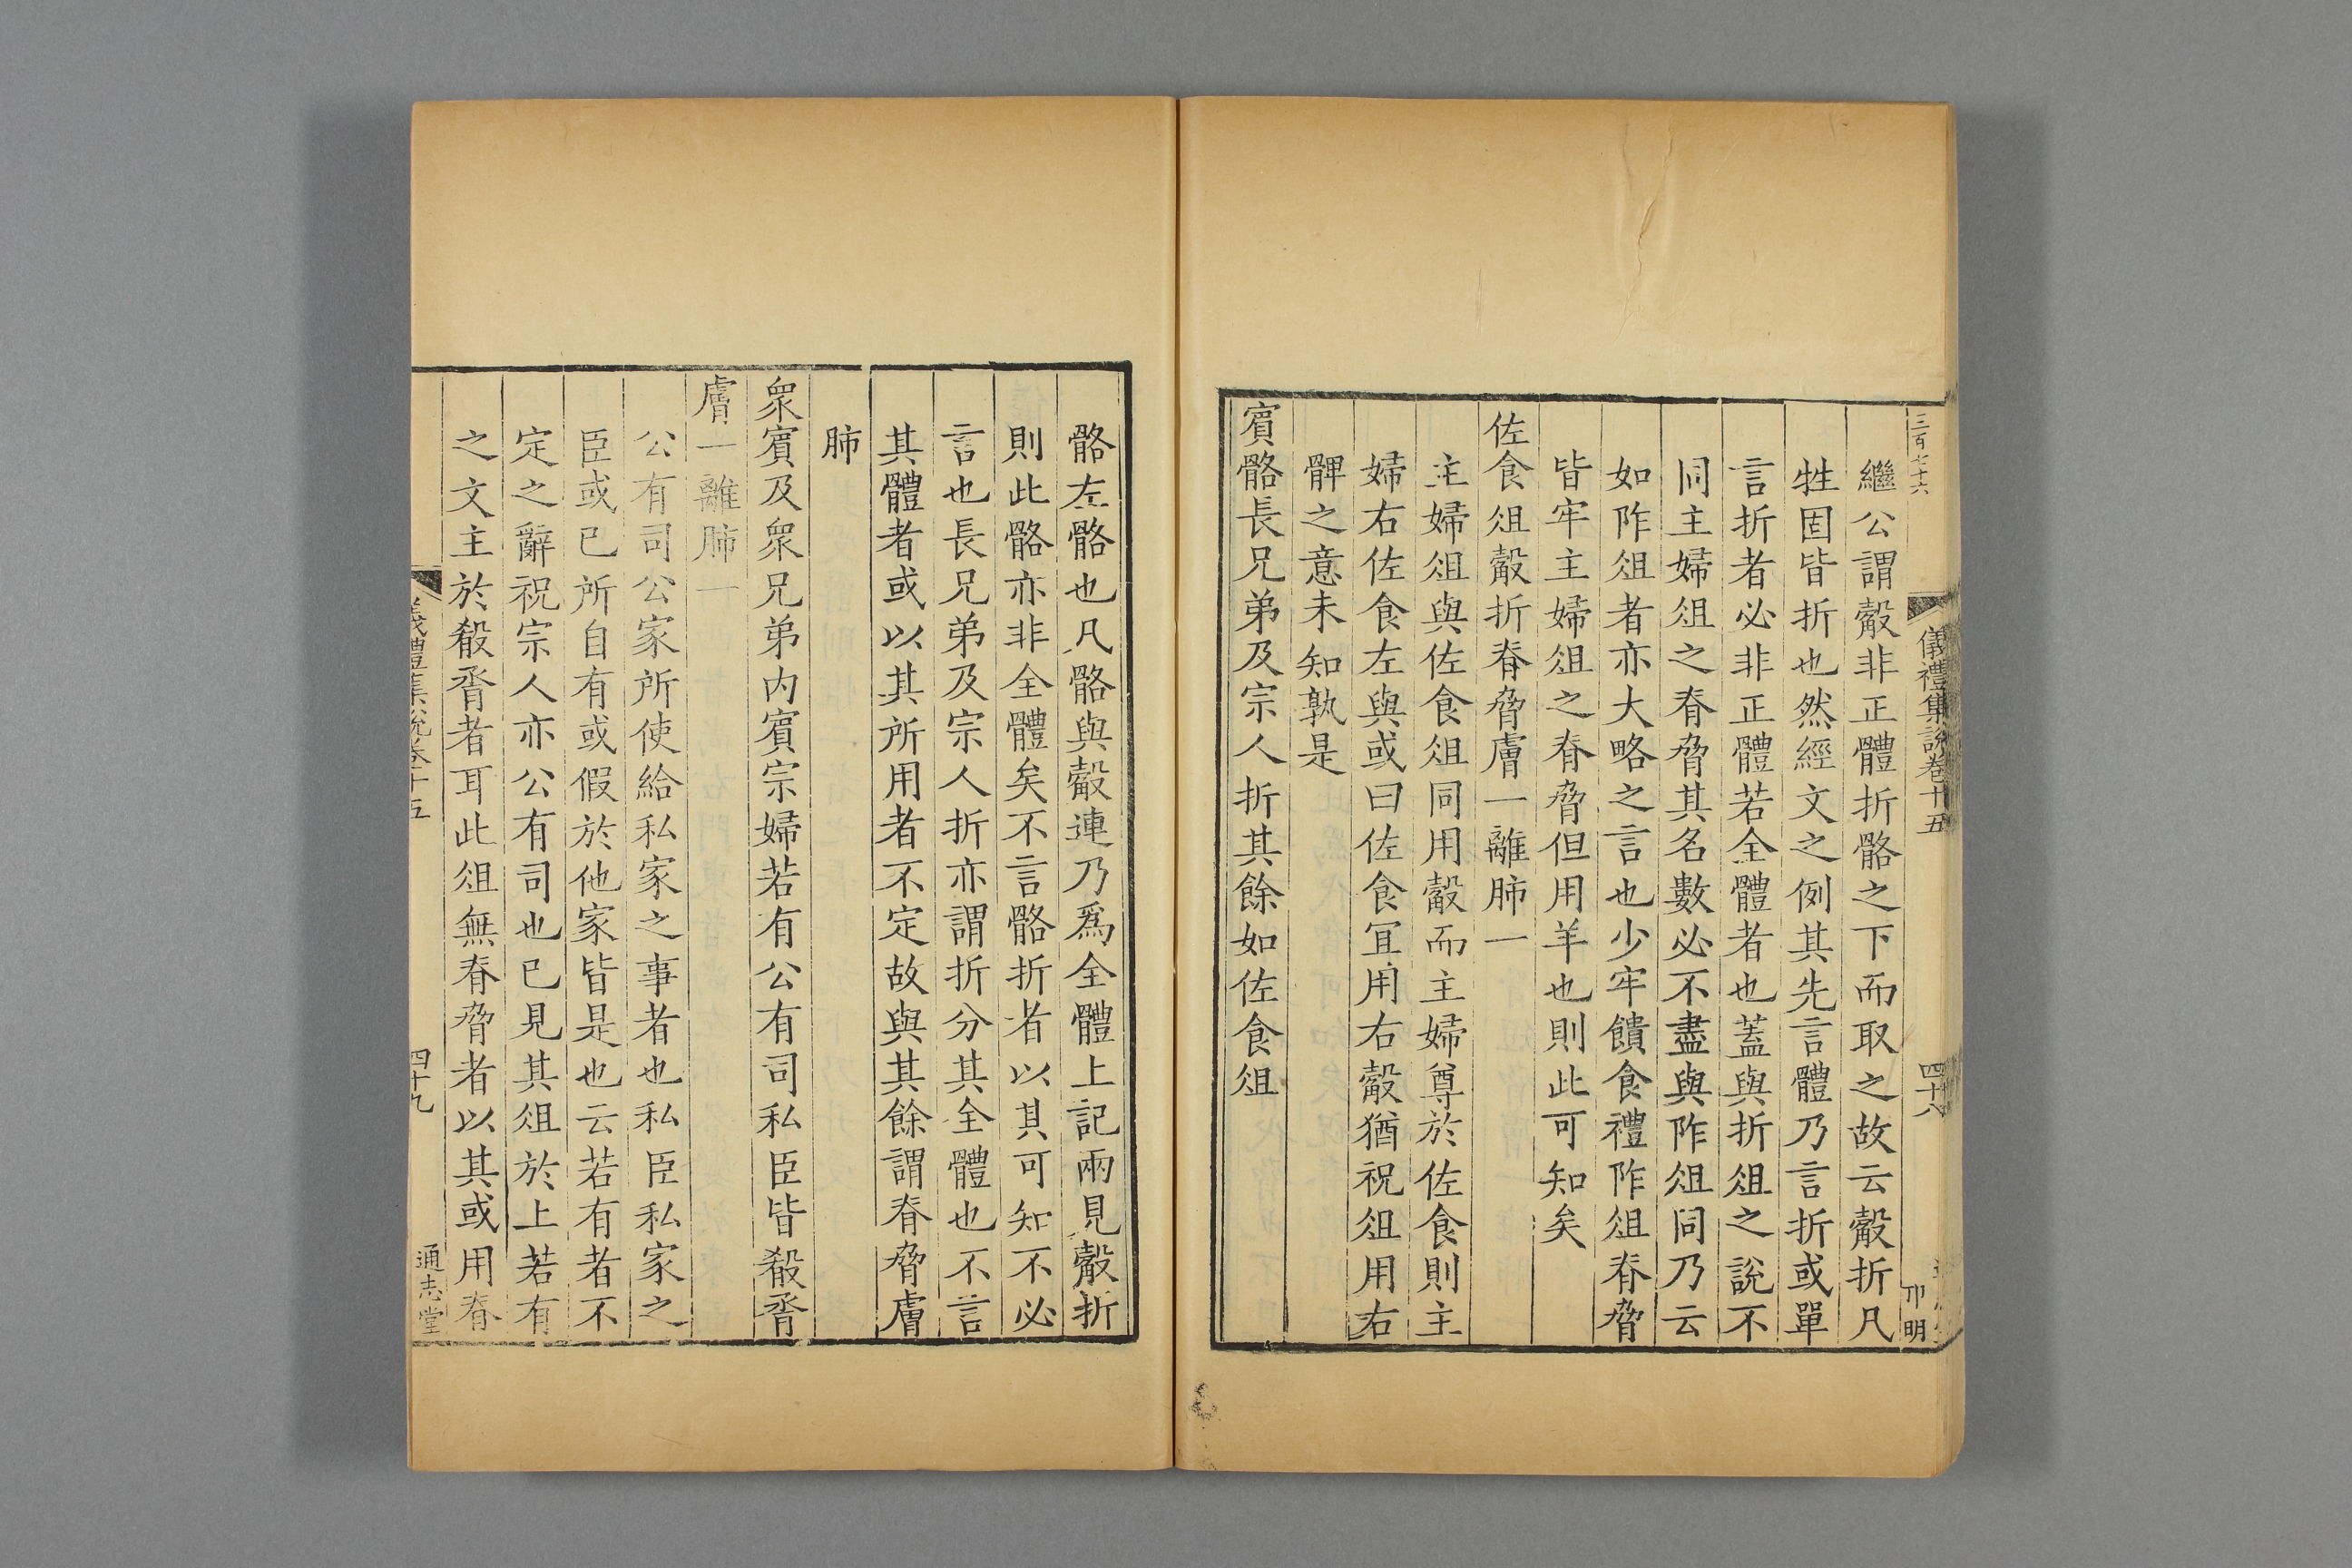 三百七十六
儀禮集説卷十五
四十八
卭明
繼公謂觳非正體折骼之下而取之故云觳折凡
牲固皆折也然經文之例其先言體乃言折或單
言折者必非正體若全體者也蓋與折俎之說不
同主婦俎之脊脅其名數必不盡與阼俎同乃云
如阼俎者亦大略之言也少牢饋食禮阼俎脊脅
皆牢主婦俎之脊脅但用羊也則此可知矣
佐食俎觳折脊脅膚一離肺一
主婦俎與佐食俎同用觳而主婦尊於佐食則主
婦右佐食左與或曰佐食冝用右觳猶祝俎用右
髀之意未知孰是
賓骼長兄弟及宗人折其餘如佐食俎
骼左骼也凡骼與觳連乃爲全體上記兩見觳折
則此骼亦非全體矣不言骼折者以其可知不必
言也長兄弟及宗人折亦謂折分其全體也不言
其體者或以其所用者不定故與其餘謂脊脅膚
肺
衆賓及衆兄弟内賓宗婦若有公有司私臣皆殽脀
膚一離肺一
公有司公家所使給私家之事者也私臣私家之
臣或已所自有或假於他家皆是也云若有者不
定之辭祝宗人亦公有司也已見其俎於上若有
之文主於殽脀者耳此俎無脊脅者以其或用脊
儀禮集説卷十五
四十九
通志堂